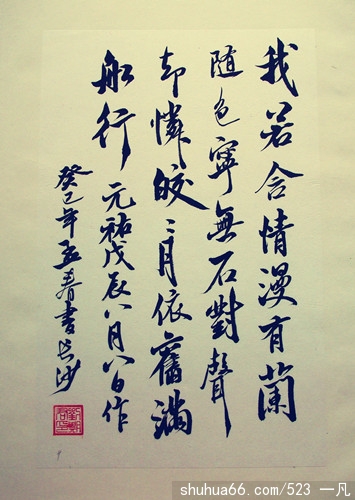 我若含情漫有蘭
随色寧無石對聲
却憐皎〻月依舊滿
船行 元祐戊辰八月八日作
癸巳年書
shuhua66.com/523 一凡